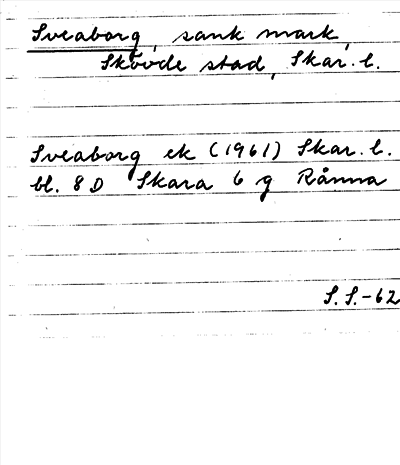 Sveaborg, sank mark,
Skövde stad, Skar. l.
Sveaborg ek (1961) Skar. l.
bl. 8 D Skara 6 g Rånna
S. S.-62